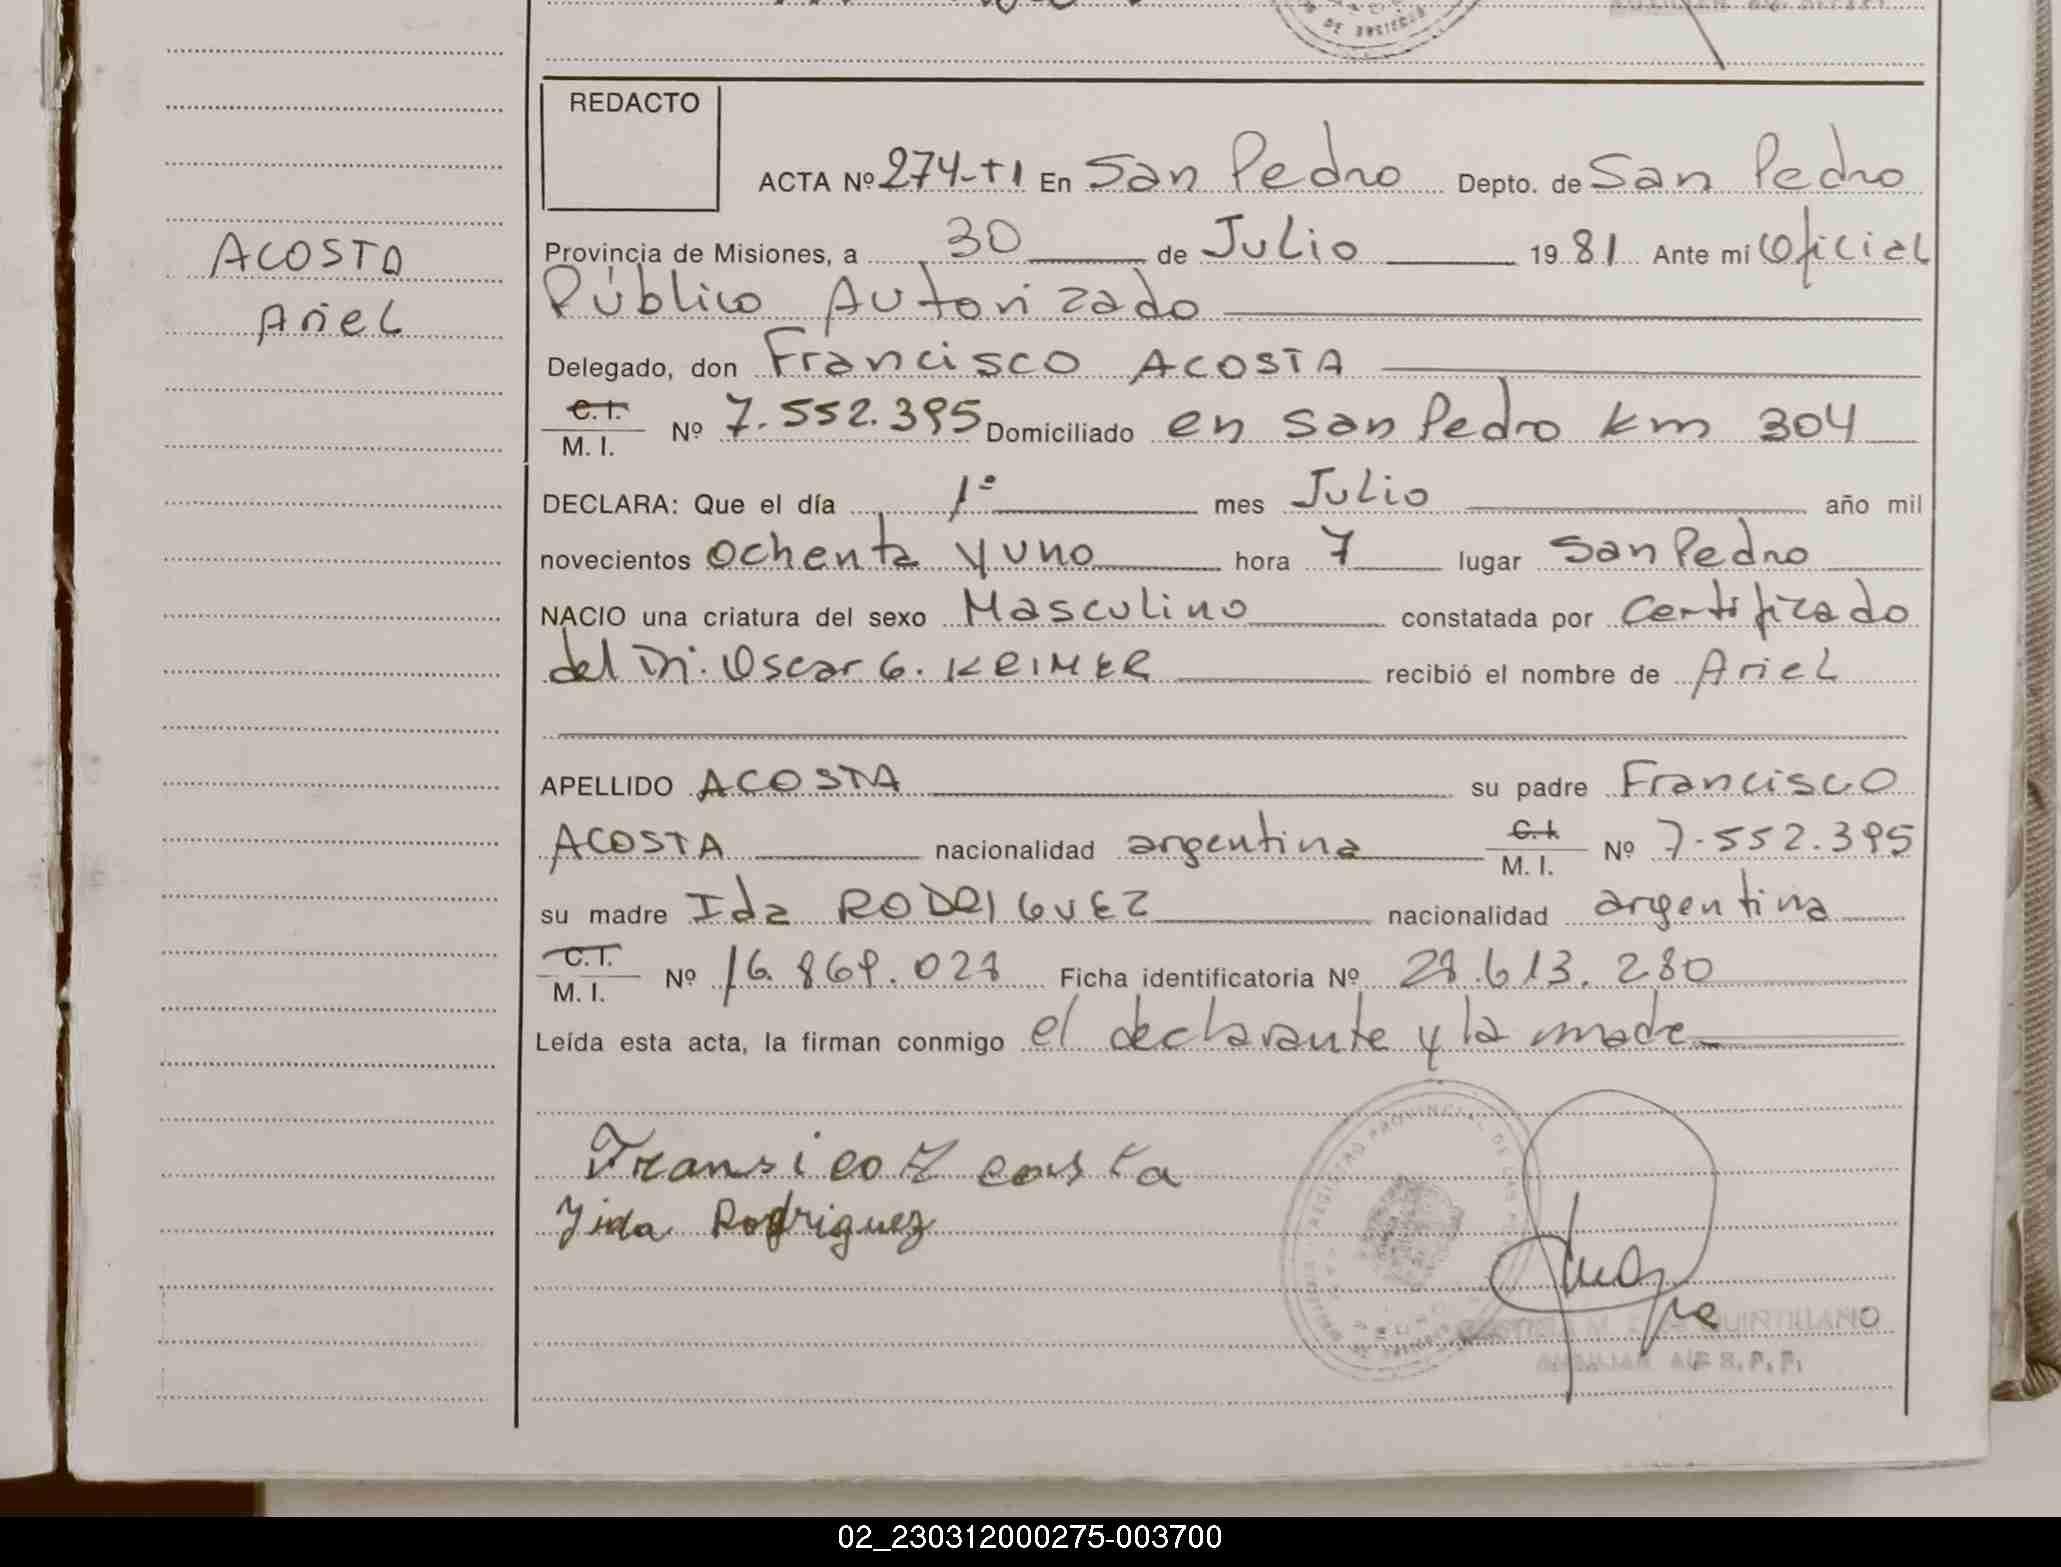 REDACTO
ACTA Nº 274-T1 En San Pedro Depto. de San Pedro
ACOSTA
Ariel
Provincia de Misiones, a 30 de Julio 1981 Ante mi Oficial
Público Autorizado
Delegado, don Francisco ACOSTA
C.I.
M. I. Nº 7.552.395 Domiciliado en San Pedro Km 304
DECLARA: Que el día 1º mes Julio año mil
novecientos ochenta y uno hora 7 lugar San Pedro
NACIO una criatura del sexo Masculino constatada por Certificado
del Dr. Oscar G. KRIMER recibió el nombre de Ariel
APELLIDO ACOSTA su padre Francisco
ACOSTA nacionalidad argentina C.I.
M. I. Nº 7.552.395
su madre Ida RODRIGUEZ nacionalidad argentina
C.I.
M. I. Nº 16.869.028 Ficha identificatoria Nº 28.613.280
Leída esta acta, la firman conmigo el declarante y la madre
Fransico Acosta
Yida Rodriguez
QUINTILLANO
AUXILIAR
02_230312000275-003700